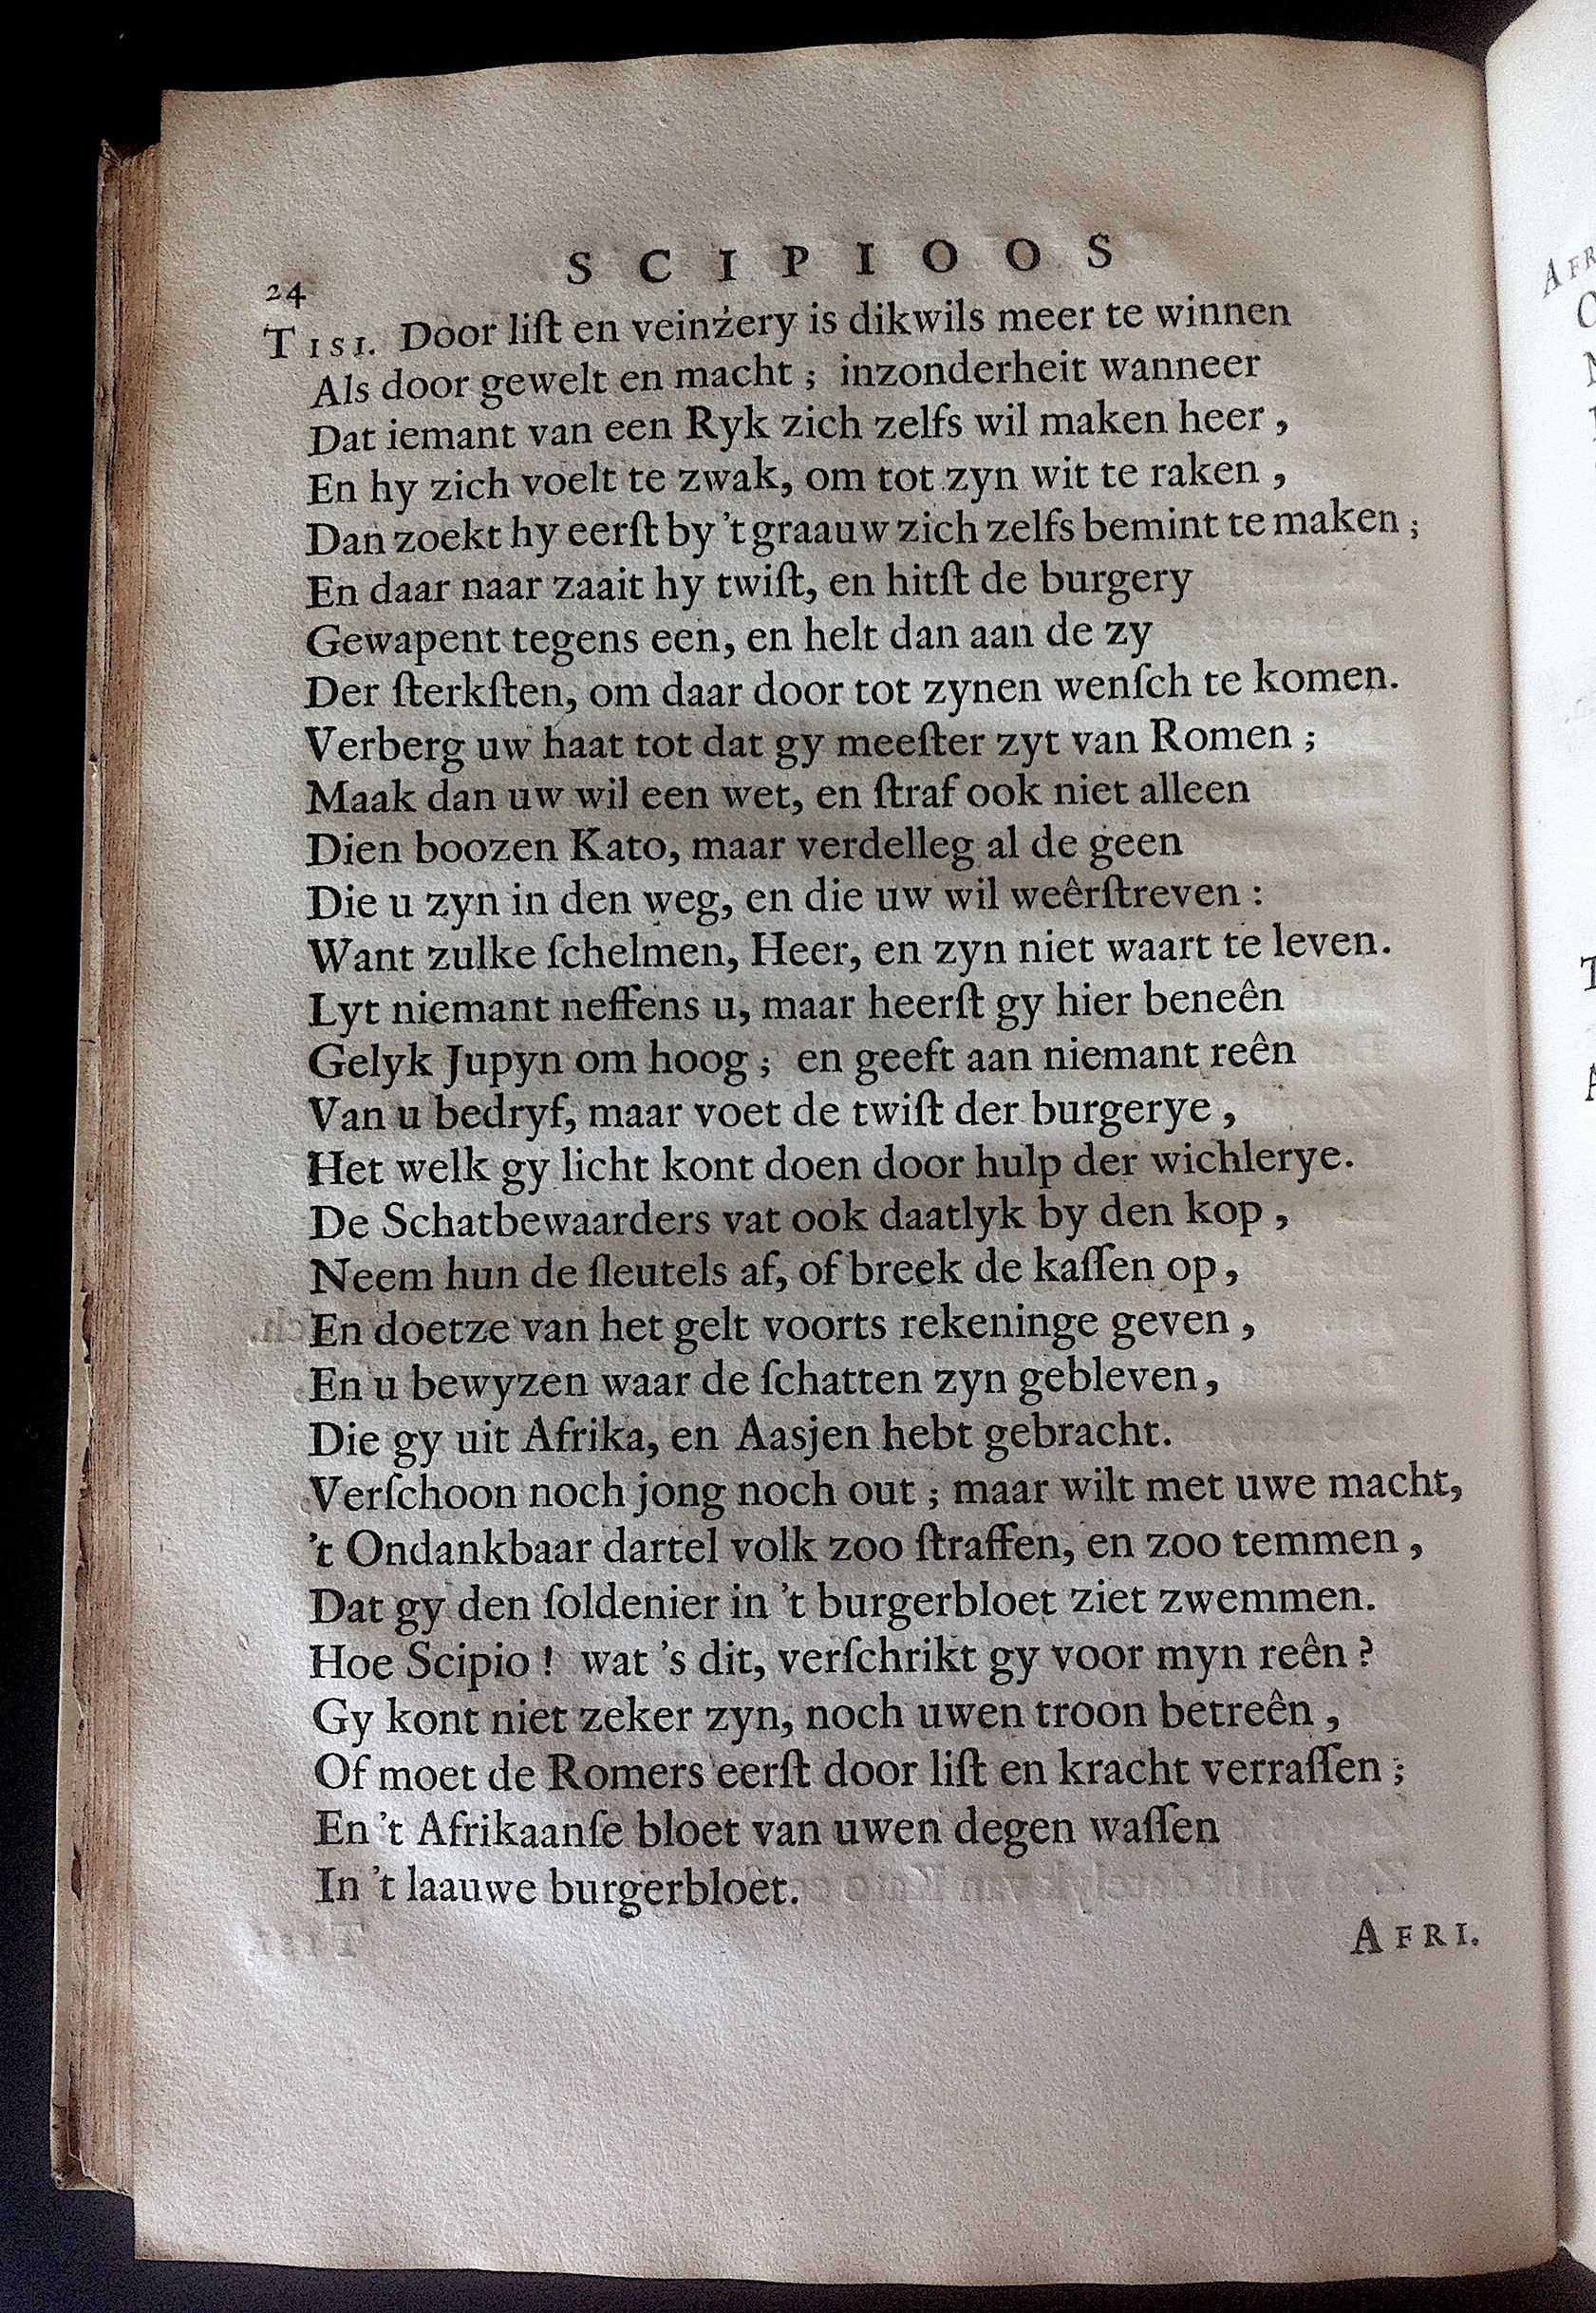 S C I P I O O S
24
TISI. Door liſt en veinzery is dikwils meer te winnen
Als door gewelt en macht ; inzonderheit wanneer
Dat iemant van een Ryk zich zelfs wil maken heer ,
En hy zich voelt te zwak, om tot zyn wit te raken ,
Dan zoekt hy eerſt by 't graauw zich zelfs bemint te maken ;
En daar naar zaait hy twiſt, en hitſt de burgery
Gewapent tegens een, en helt dan aan de zy
Der ſterkſten, om daar door tot zynen wenſch te komen.
Verberg uw haat tot dat gy meeſter zyt van Romen ;
Maak dan uw wil een wet, en ſtraf ook niet alleen
Dien boozen Kato, maar verdelleg al de geen
Die u zyn in den weg, en die uw wil weêrſtreven :
Want zulke ſchelmen, Heer, en zyn niet waart te leven.
Lyt niemant neffens u, maar heerſt gy hier beneên
Gelyk Jupyn om hoog ; en geeft aan niemant reên
Van u bedryf, maar voet de twiſt der burgerye ,
Het welk gy licht kont doen door hulp der wichlerye.
De Schatbewaarders vat ook daatlyk by den kop ,
Neem hun de ſleutels af, of breek de kaſſen op ,
En doetze van het gelt voorts rekeninge geven ,
En u bewyzen waar de ſchatten zyn gebleven ,
Die gy uit Afrika, en Aasjen hebt gebracht.
Verſchoon noch jong noch out ; maar wilt met uwe macht,
't Ondankbaar dartel volk zoo ſtraffen, en zoo temmen ,
Dat gy den ſoldenier in 't burgerbloet ziet zwemmen.
Hoe Scipio ! wat 's dit, verſchrikt gy voor myn reên ?
Gy kont niet zeker zyn, noch uwen troon betreên ,
Of moet de Romers eerſt door liſt en kracht verraſſen ;
En 't Afrikaanſe bloet van uwen degen waſſen
In 't laauwe burgerbloet.
AFRI.